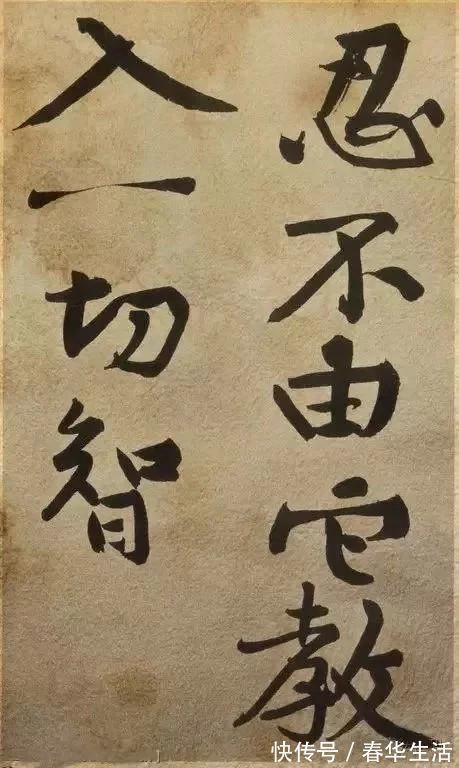 忍不由它教
入一切智
快传号／春华生活